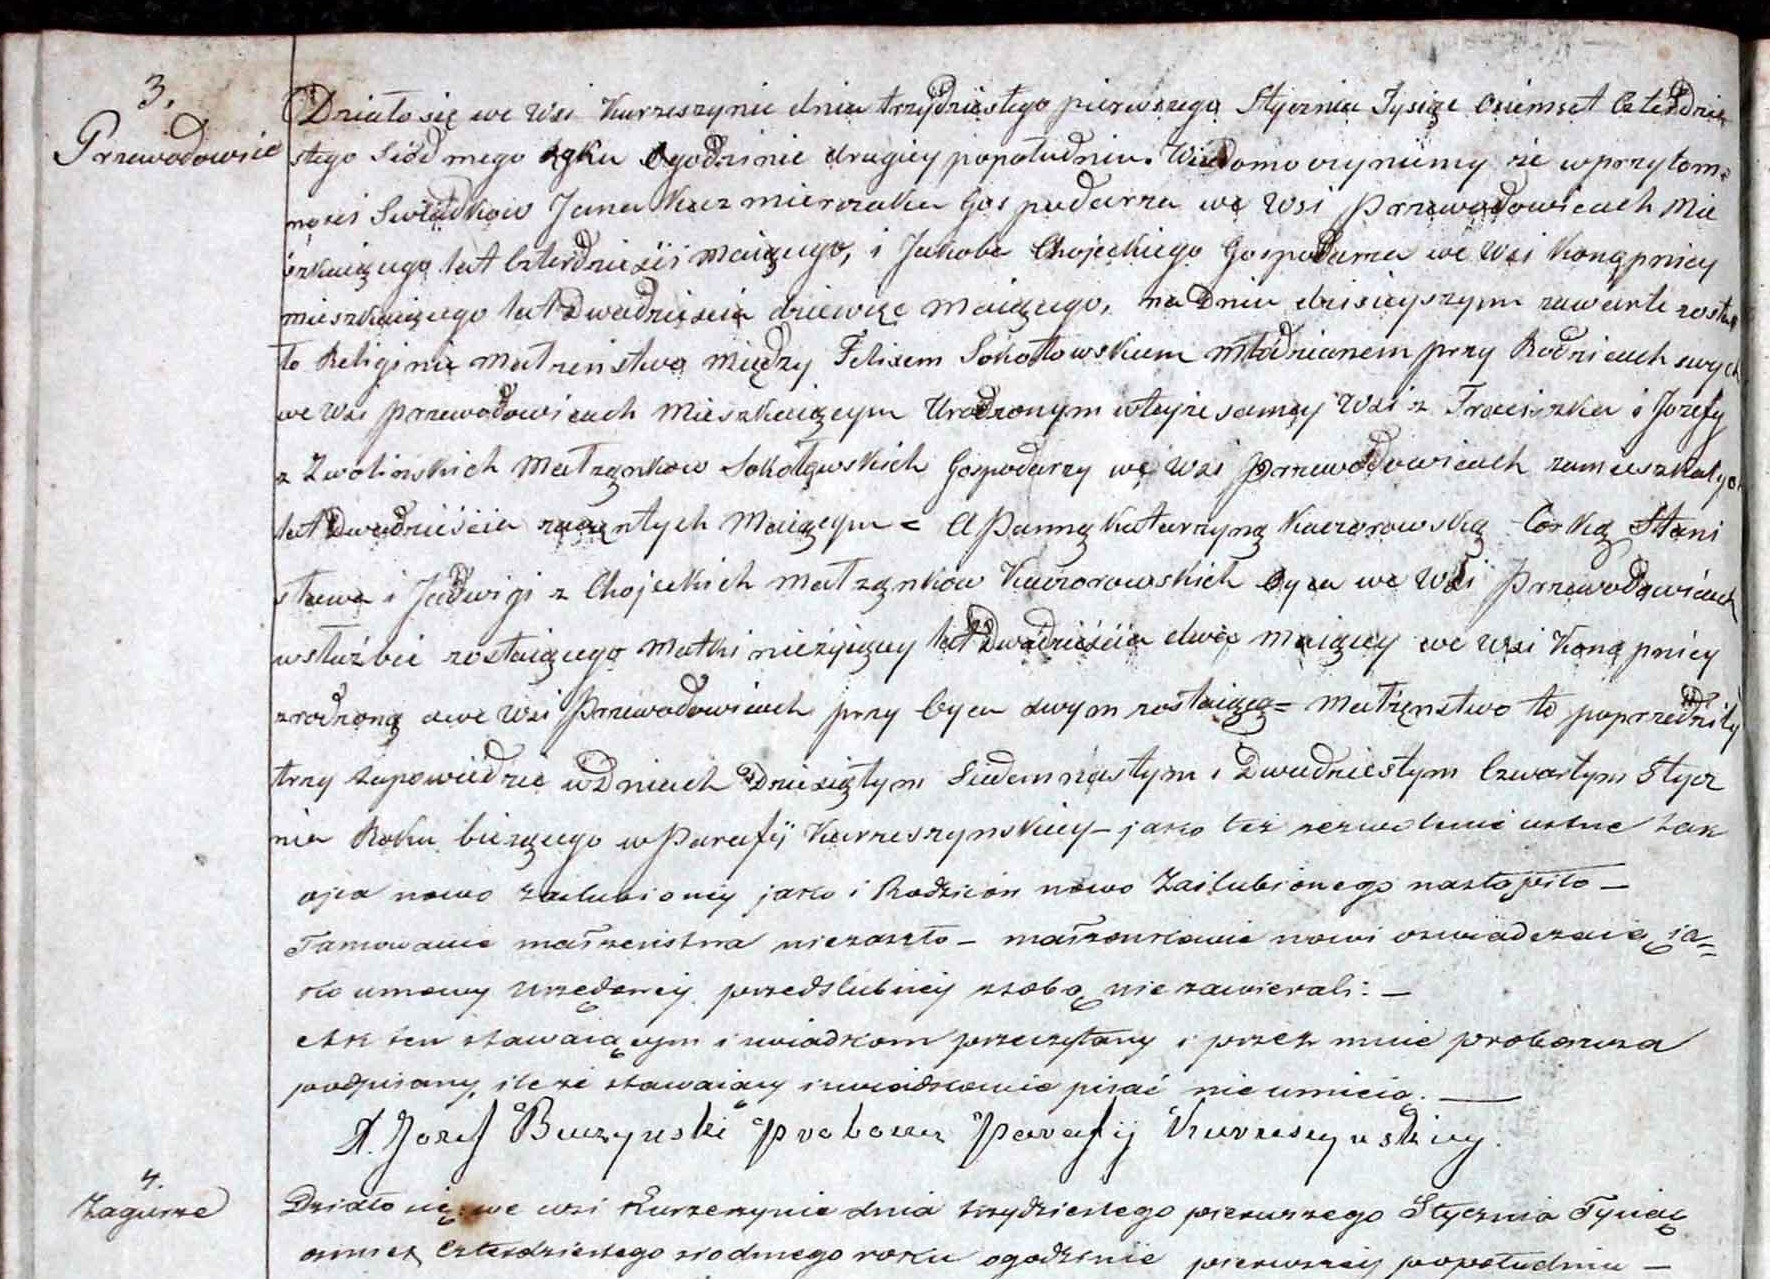 3.
Przewodowice
Działo się we Wsi Kurzeszynie dnia trzydziestego pierwszego Stycznia Tysiąc Osiemset Czterdzie
stego Siódmego roku o godzinie drugiey popołudniu. Wiadomo czyniemy że wprzytom=
nosci Swiadkow Jana Kazmierczaka Gospodarza we Wsi Przewodowicach Mie
szkaiącego lat Czterdzieści maiącego, i Jakoba Chojeckiego Gospodarza we Wsi Konopnicy
mieszkaiącego lat Dwadzieścia dziewięc maiącego, na Dniu dzisieyszym zawarte zosta
ło Religijnie Małżeństwo między Felixem Sokołowskiem młodzianem przy Rodzicach swych
we Wsi Przewodowicach Mieszkaiącym Urodzonym wteyże samey Wsi z Franciszka i Jozefy
z Zwolińskich Małżonkow Sokołowskich Gospodarzy we Wsi Przewodowicach zamieszkałych
lat Dwadzieścia zaczętych Maiącym = A Panną Katarzyną Kaczorowską Corką Stani
sława i Jadwigi z Chojeckich Małżonkow Kaczorowskich Oyca we Wsi Przewodowicach
wsłużbie zostaiącego Matki nieżyiącey lat Dwadzieścia dwa Maiącey we Wsi Konopnicy
zrodzoną a we Wsi Przewodowicach przy Oycu swym zostaiącą = Małżeństwo to poprzedziły
trzy Zapowiedzie w Dniach Dziesiątym Siedemnastym i Dwudziestym Czwartym Stycz
nia Roku bieżącego w Parafij Kurzeszynskiey – jako też zezwolenie ustne tak
ojca nowo zaślubioney jako i Rodziców nowo Zaślubionego nastąpiło –
Tamowanie małżeństwa niezaszło – małżonkowie nowi oswiadczaią ja=
ko umowy urzędowey przedslubney z sobą nie zawierali: –
Akt ten stawaiącym i swiadkom przeczytany i przez mnie proboszcza
podpisany, ile że stawaiący i swiadkowie pisać nieumieią. –
X. Jozef Buczynski Proboszcz Parafij Kurzeszynskiey.
4.
Zagurze
Działo się we wsi Kurzeszynie dnia trzydziestego pierwszego Stycznia Tysiąc
osmset Czterdziestego siodmego roku ogodzinie pierwszey popołudniu –